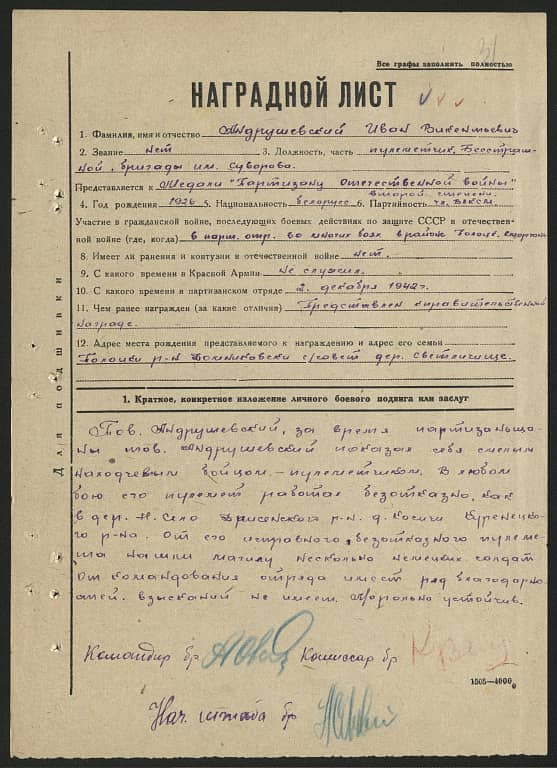 Все графы заполнять полностью
НАГРАДНОЙ ЛИСТ
1. Фамилия, имя и отчество Андрушевский Иван Викентьевич
2. Звание нет 3. Должность, часть пулеметчик, Бесстраш-
ной, бригады им. Суворова.
Представляется к Медали "Партизану Отечественной войны"
второй степени
4. Год рождения 1926 5. Национальность белорусс 6. Партийность чл. ВЛКСМ
Участие в гражданской войне, последующих боевых действиях по защите СССР и отечествен-
ной войне (где, когда) в парт. отр. во многих боях в районе Полоцк,
8. Имеет ли ранения и контузии в отечественной войне нет.
9. С какого времени в Красной Армии не служил.
10. С какого времени в партизанском отряде 2. декабря 1942 г.
11. Чем ранее награжден (за какие отличия) Представлен к правительственной
награде.
12. Адрес места рождения представляемого к награждению и адрес его семьи
Полоцки р-н Домниковски с/совет дер. Светличище.
Для подшивки
1. Краткое, конкретное изложение личного боевого подвига или заслуг
Тов. Андрушевский, за время партизанщи-
ны тов. Андрушевский показал себя смелым
находчевым бойцом – пулеметчиком. В любом
бою его пулемет работал безотказно, как
в дер. Н. Село Дрисенского р-н. д. Косичи Куренецко-
го р-на. От его исправного, безотказного пулеме-
та нашли магилу несколько немецких солдат
От командования отряда имеет ряд благодарно
стей. взысканий не имеет. Морально устойчив.
Командир бр Комиссар бр
1505—4000
Нач. штаба бр